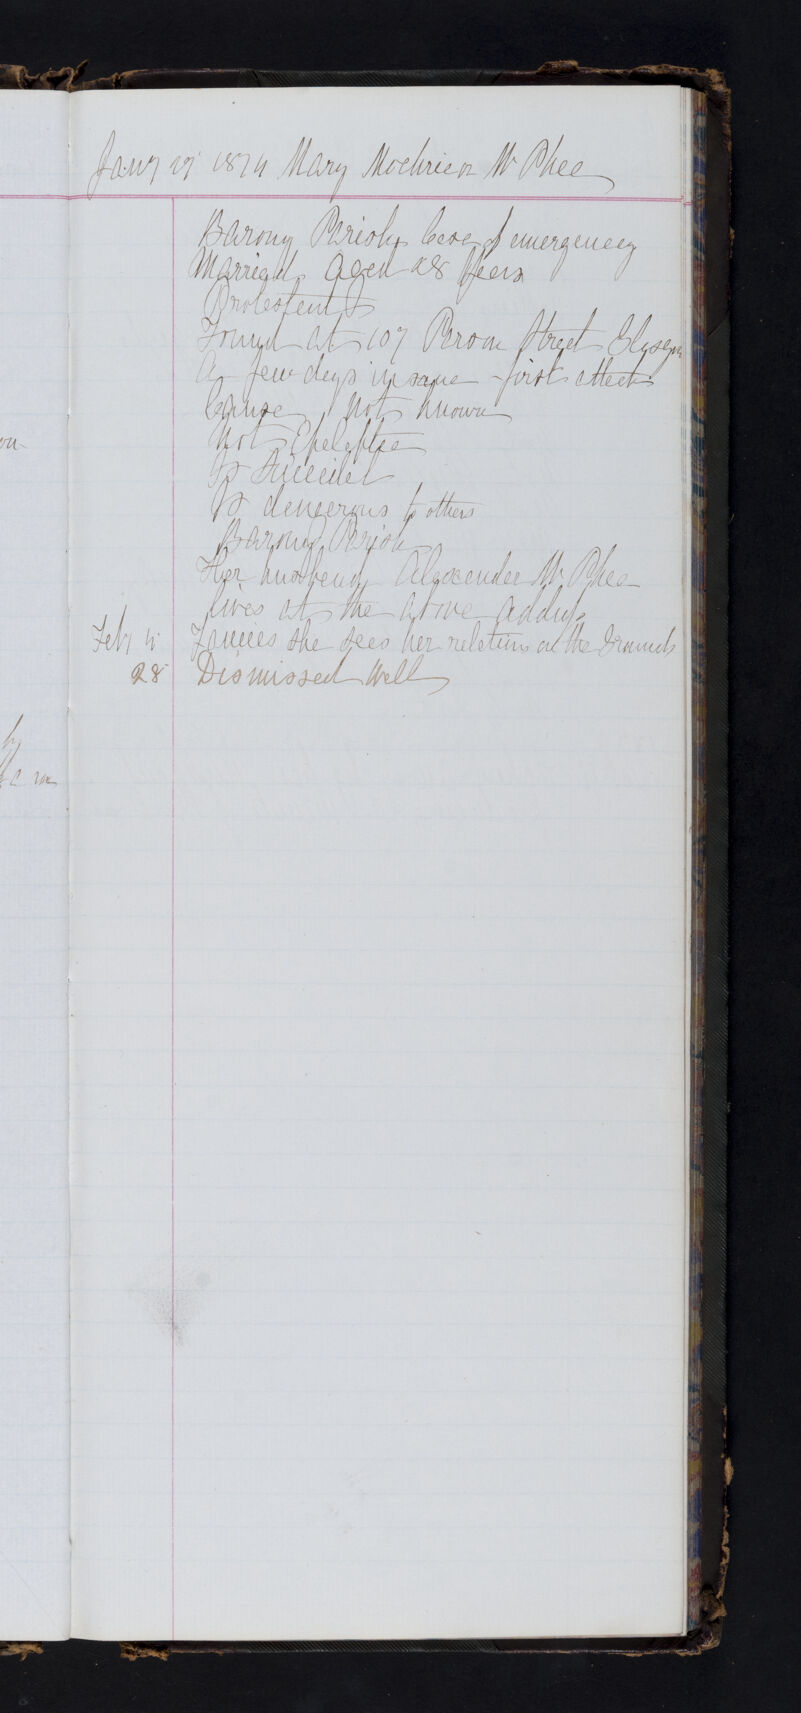 Jany 27 1874 Mary Mochrie or McPhee
Barony Parish Case of emergency
Married Aged 28 Years
Protestant
Found at 107 Street Glasgow
A few days insane - first attack
Cause Not known
Not Epileptic
Is Suicidal
Is dangerous to others
Barony Parish
Her husband Alexander McPhee
lives at the above address
Feby 4 Fancies she sees her relations on the
28 Dismissed Well
on
by